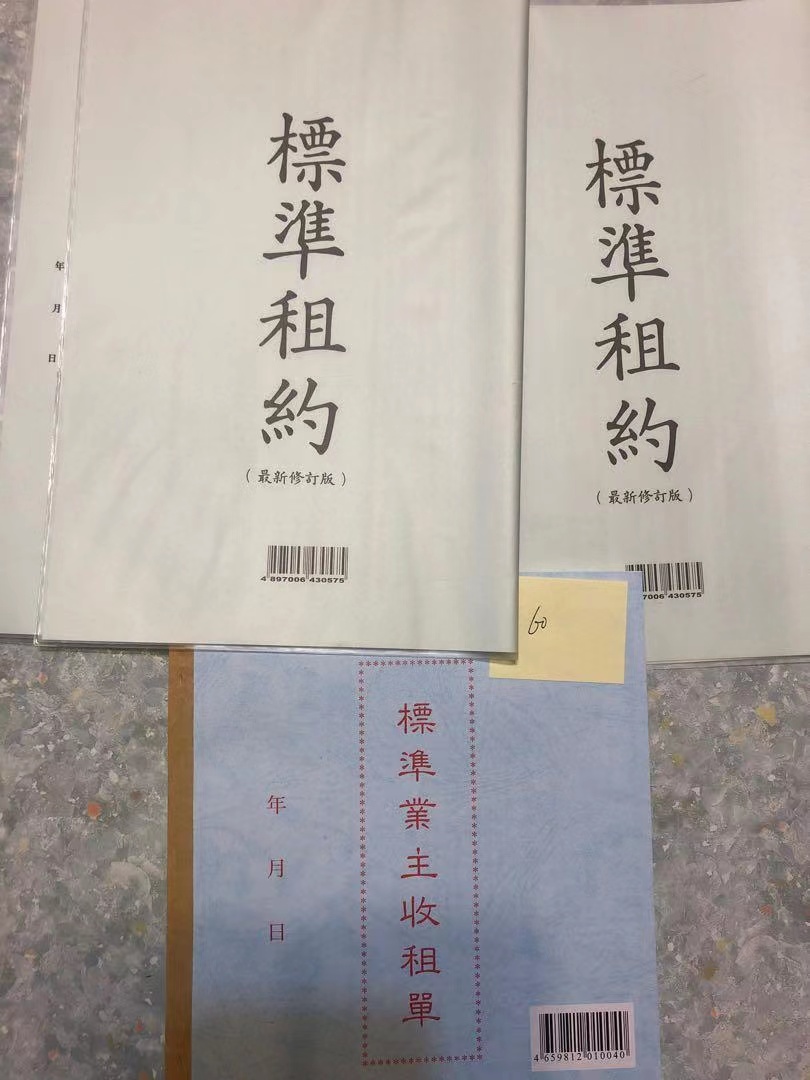 標準租約
(最新修訂版)
4 897006 430575
年月日
標準租約
(最新修訂版)
7006 430575
60
標準業主收租單
年月日
4 659812 010040